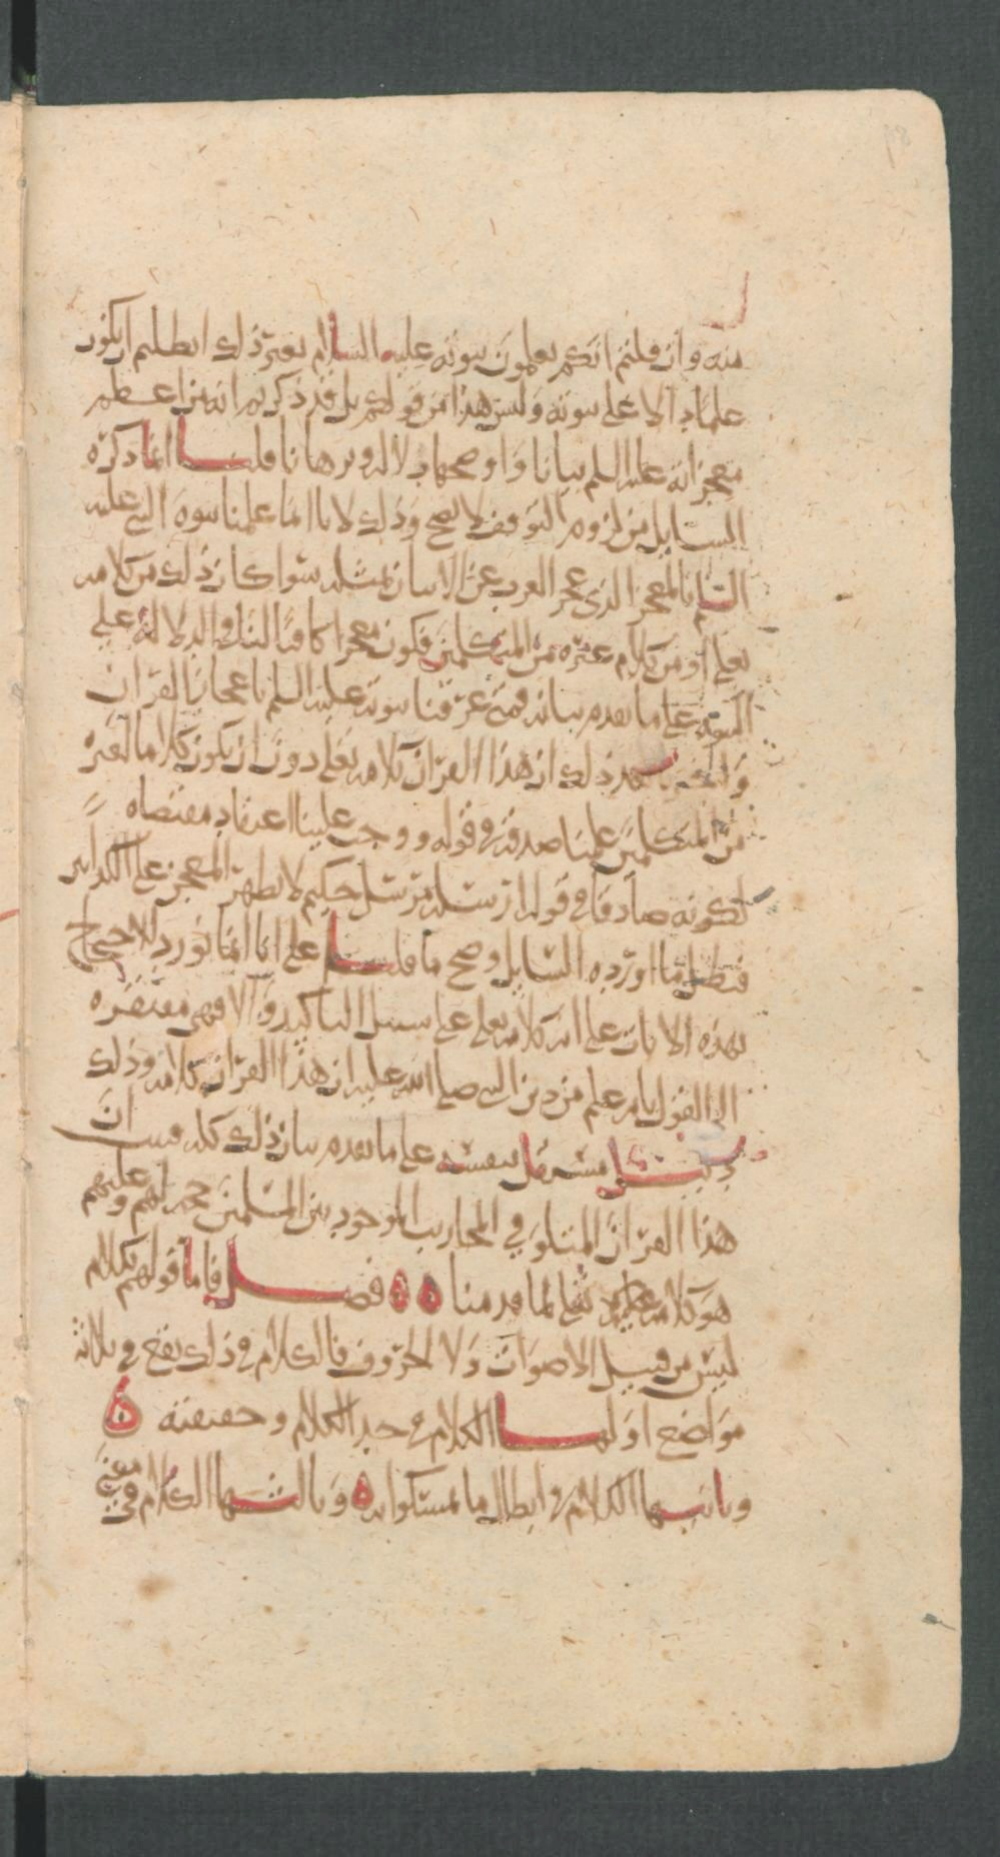 منه وان قلتم انكم تعلمون نبوته عليه السلام بغير ذلك ابطلتم ان يكون
علما دالا على نبوته وليس هذا من قولكم بل قد ذكرتم انه من اعظم
معجزاته عليه السلم بيانا واوضحها دلالة وبرهانا قلنا انما ذكره
السايل من لزوم التوقف لا يصح وذلك لانا انما علمنا نبوة النبي عليه
السلم بالمعجز الذي عجز العرب عن الاتيان بمثله سوا كان ذلك من كلامه
تعلى او من كلام غيره من المتكلمين فيكون معجزا كافيا لنا في الدلالة على
النبوة على ما تقدم بيانه فمتى عرفنا نبوته عليه السلم باعجاز القران
بعد ذلك ان هذا القران كلامه تعلى دون ان يكون كلاما لغيره
من المتكلمين علمنا صدقه في قوله ووجب علينا اعتقاد مقتضاه
لكونه صادقا في قوله ارسله مرسل حكيم لا يظهر المعجز على الكذابين
فبطل ما اورده السايل وصح ما قلنا على انا انما نورد الاحتجاج
بهذه الايات على انه كلامه تعلى على سبيل التاكيد والا فهي مفتقرة
الى القول بانه علم من دين النبي صلى الله عليه ان هذا القران كلامه وذلك
دليل مستقل بنفسه على ما تقدم بيان ذلك كله فثبت ان
هذا القران المتلو في المحاريب الموجود بين المسلمين حجة لهم وعليهم
هو كلامه تعلى لما قدمنا ۞ ۞ فصل فاما قولهم بكلام
ليس من قبيل الاصوات ولا الحروف فالكلام في ذلك يقع في ثلاثة
مواضع اولها الكلام في حد الكلام وحقيقته ۞
وثانيها الكلام في ابطال ما تمسكوا به ۞ وثالثها الكلام في معنى